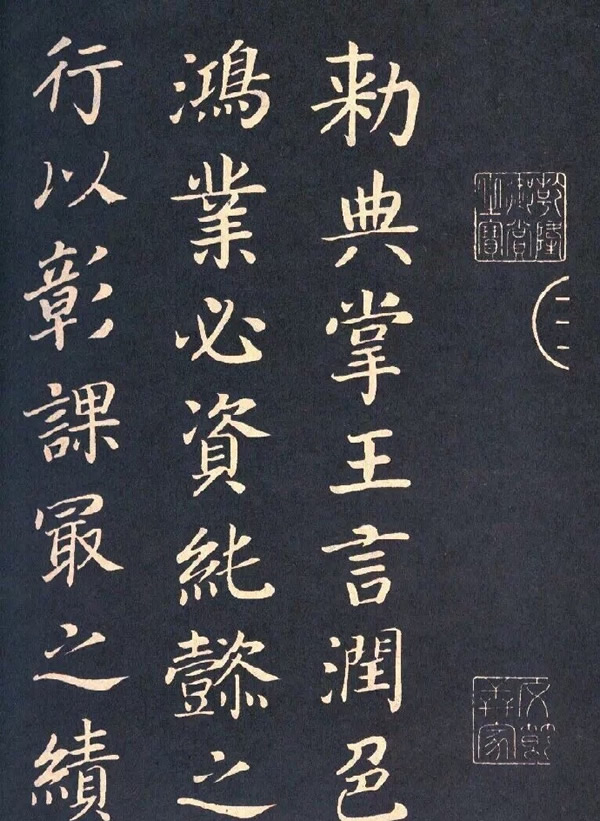 勑典掌王言潤色
鴻業必資純懿之
行以彰課冣之績